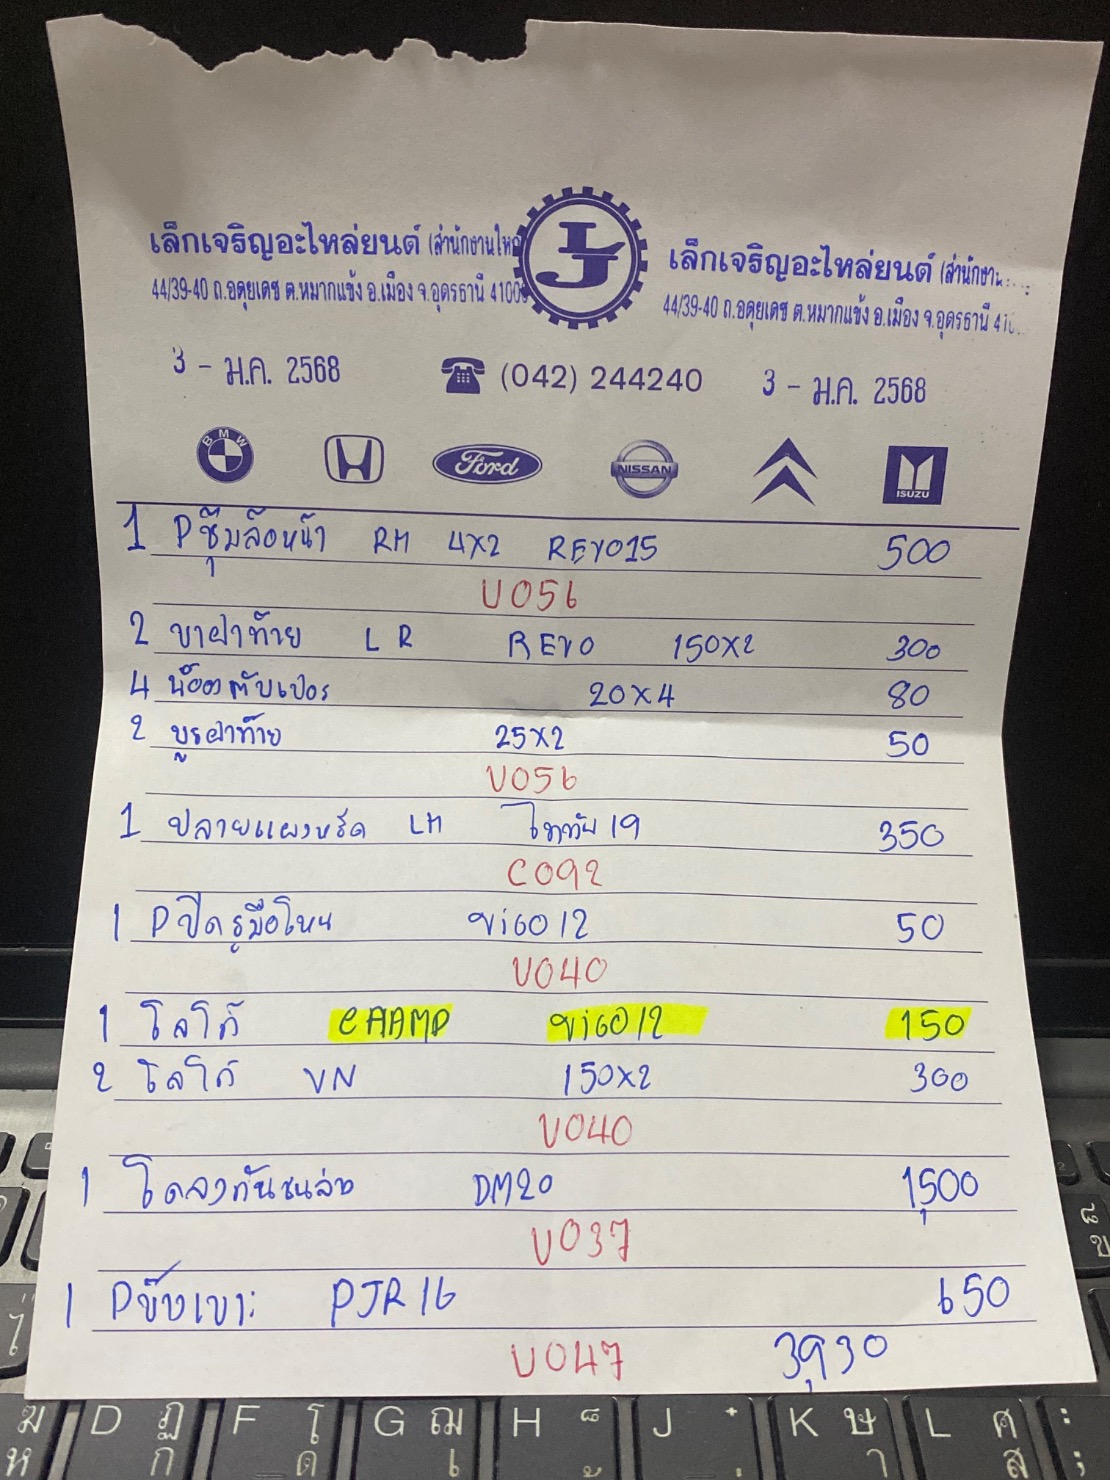 เล็กเจริญอะไหล่ยนต์ (สำนักงานใหญ่
44/39-40 ถ.อดุยเดช ต.หมากแข้ง อ.เมือง จ.อุดรธานี 41000
LJ
เล็กเจริญอะไหล่ยนต์ (สำนักงาน
44/39-40 ถ.อดุยเดช ต.หมากแข้ง อ.เมือง จ.อุดรธานี 410
3 - ม.ค. 2568
(042) 244240
3 - ม.ค. 2568
BMW
Ford
NISSAN
ISUZU
1 Pซุ้มล้อหน้า RH 4X2 REVO15 500
U056
2 ขาฝาท้าย L R REVO 150X2 300
4 น็อต 20X4 80
2 บูชฝาท้าย 25X2 50
U056
1 ปลาย LH ไททัน 19 350
C092
1 Pปิดรูมือโหน VIGO 12 50
U040
1 โลโก้ CHAMP VIGO 12 150
2 โลโก้ VN 150X2 300
U040
1 DM20 1,500
U037
1 PJR16 650
U047
3,930
D ฏ ก
F โ ด
G ฌ เ
H ็ ้
J ๋ ่
K ษ า
L ศ ส
ฆ ห